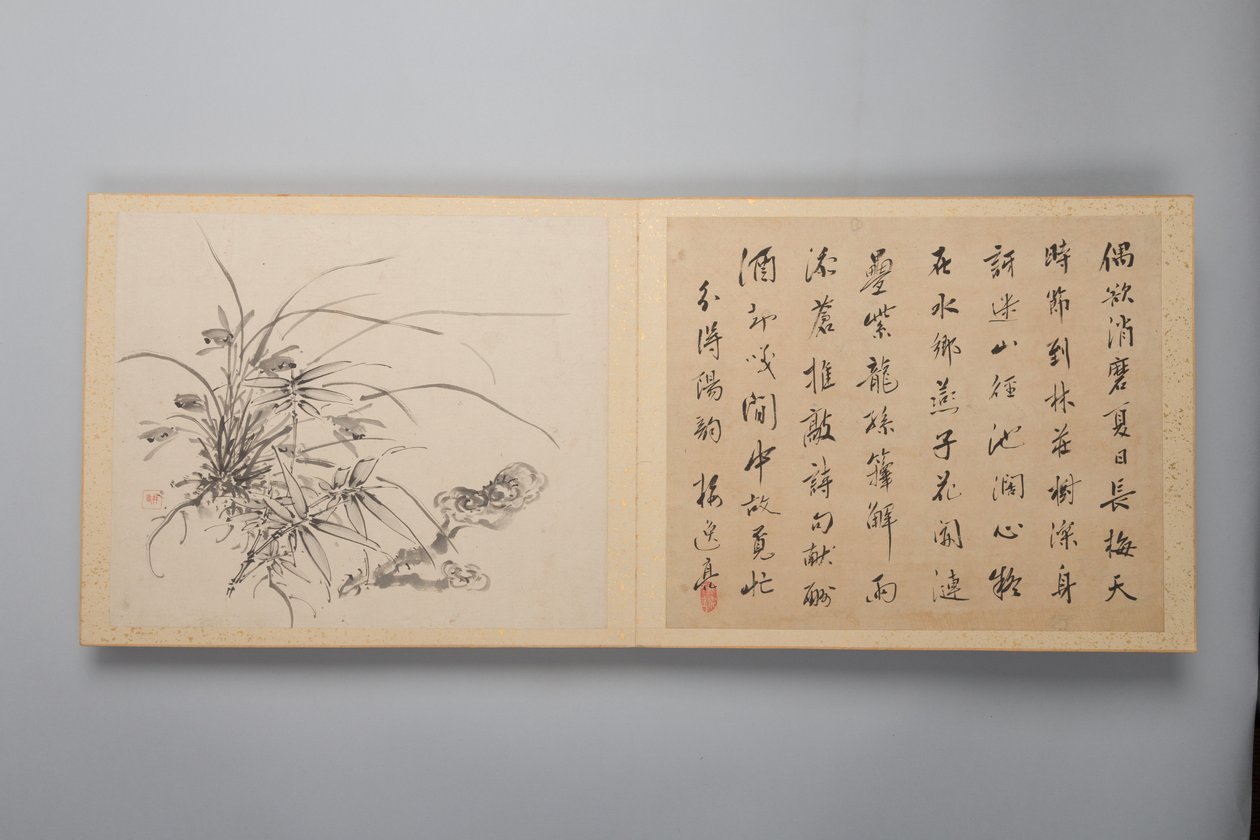 偶欲消磨夏日長梅天
時節到林莊樹深身
訝迷山徑池濶心疑
在水鄉燕子花開漣
疊紫龍孫籜解雨
添蒼推敲詩句献酬
酒却咲閒中故覓忙
分得陽韵 梅逸亮